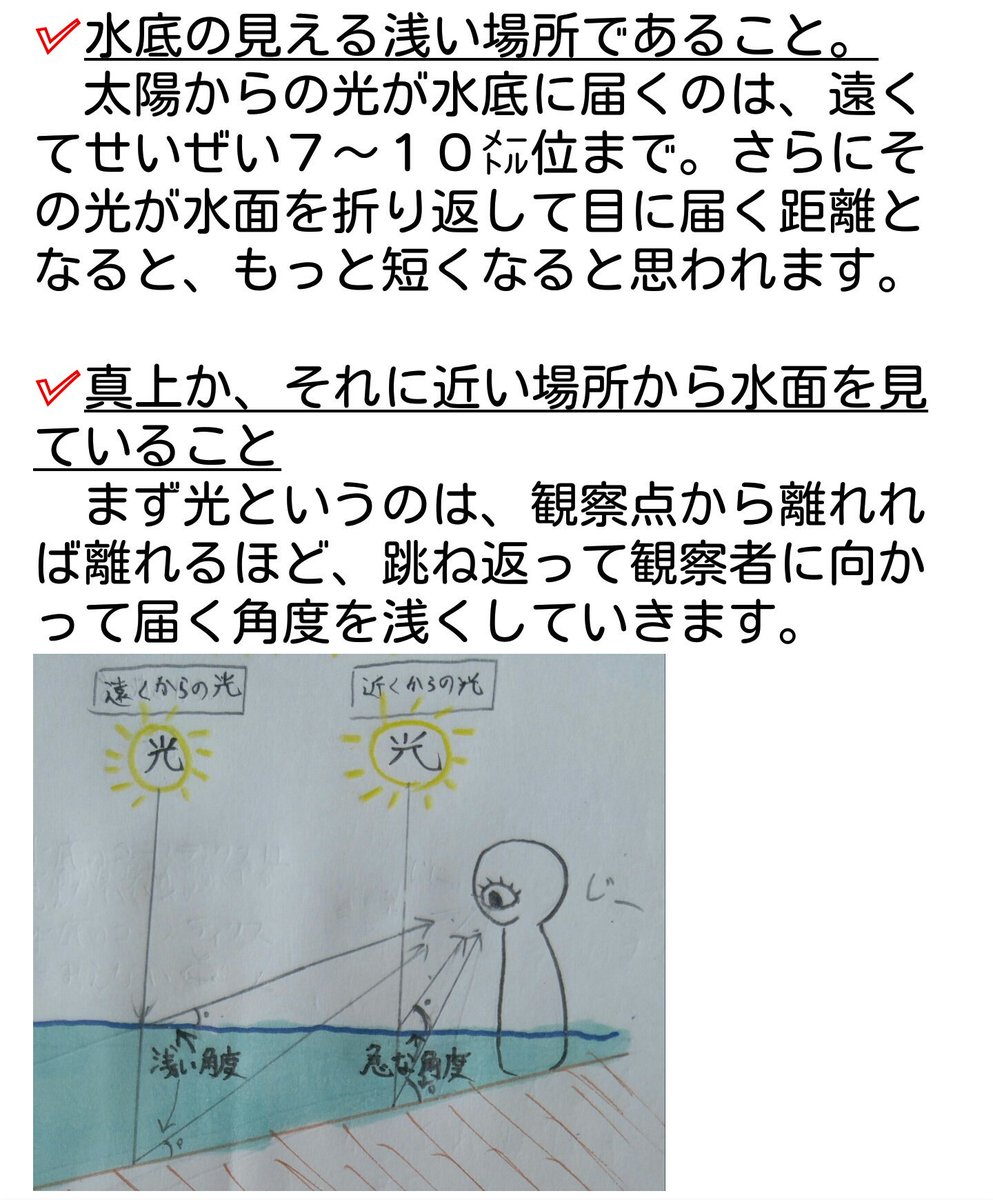 ✓水底の見える浅い場所であること。
　太陽からの光が水底に届くのは、遠く
てせいぜい７～１０㍍位まで。さらにそ
の光が水面を折り返して目に届く距離と
なると、もっと短くなると思われます。
✓真上か、それに近い場所から水面を見
ていること
　まず光というのは、観察点から離れれ
ば離れるほど、跳ね返って観察者に向か
って届く角度を浅くしていきます。
遠くからの光
近くからの光
光
光
じー
浅い角度
急な角度